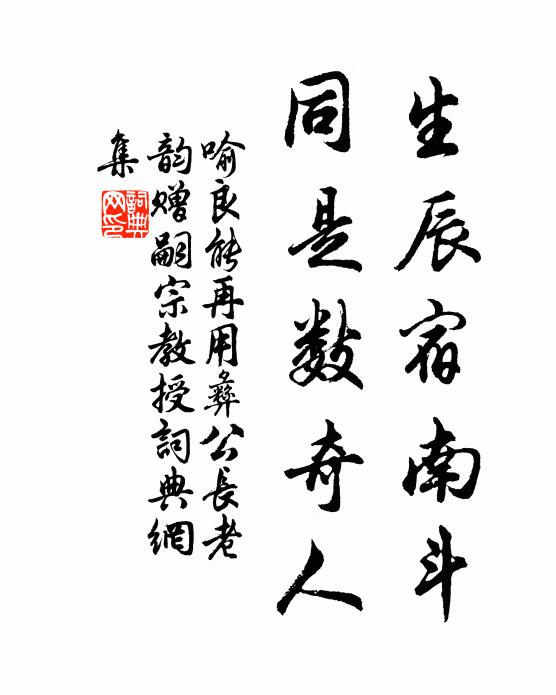 生辰宿南斗
同是数奇人
喻良能再用彝公長老
韵赠嗣宗教授詞典網
集
詞典网印